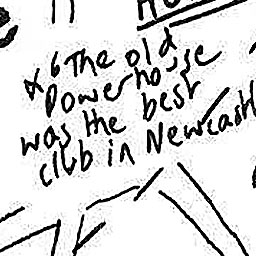 *6 The old
Powerhouse
was the best
club in Newcastl